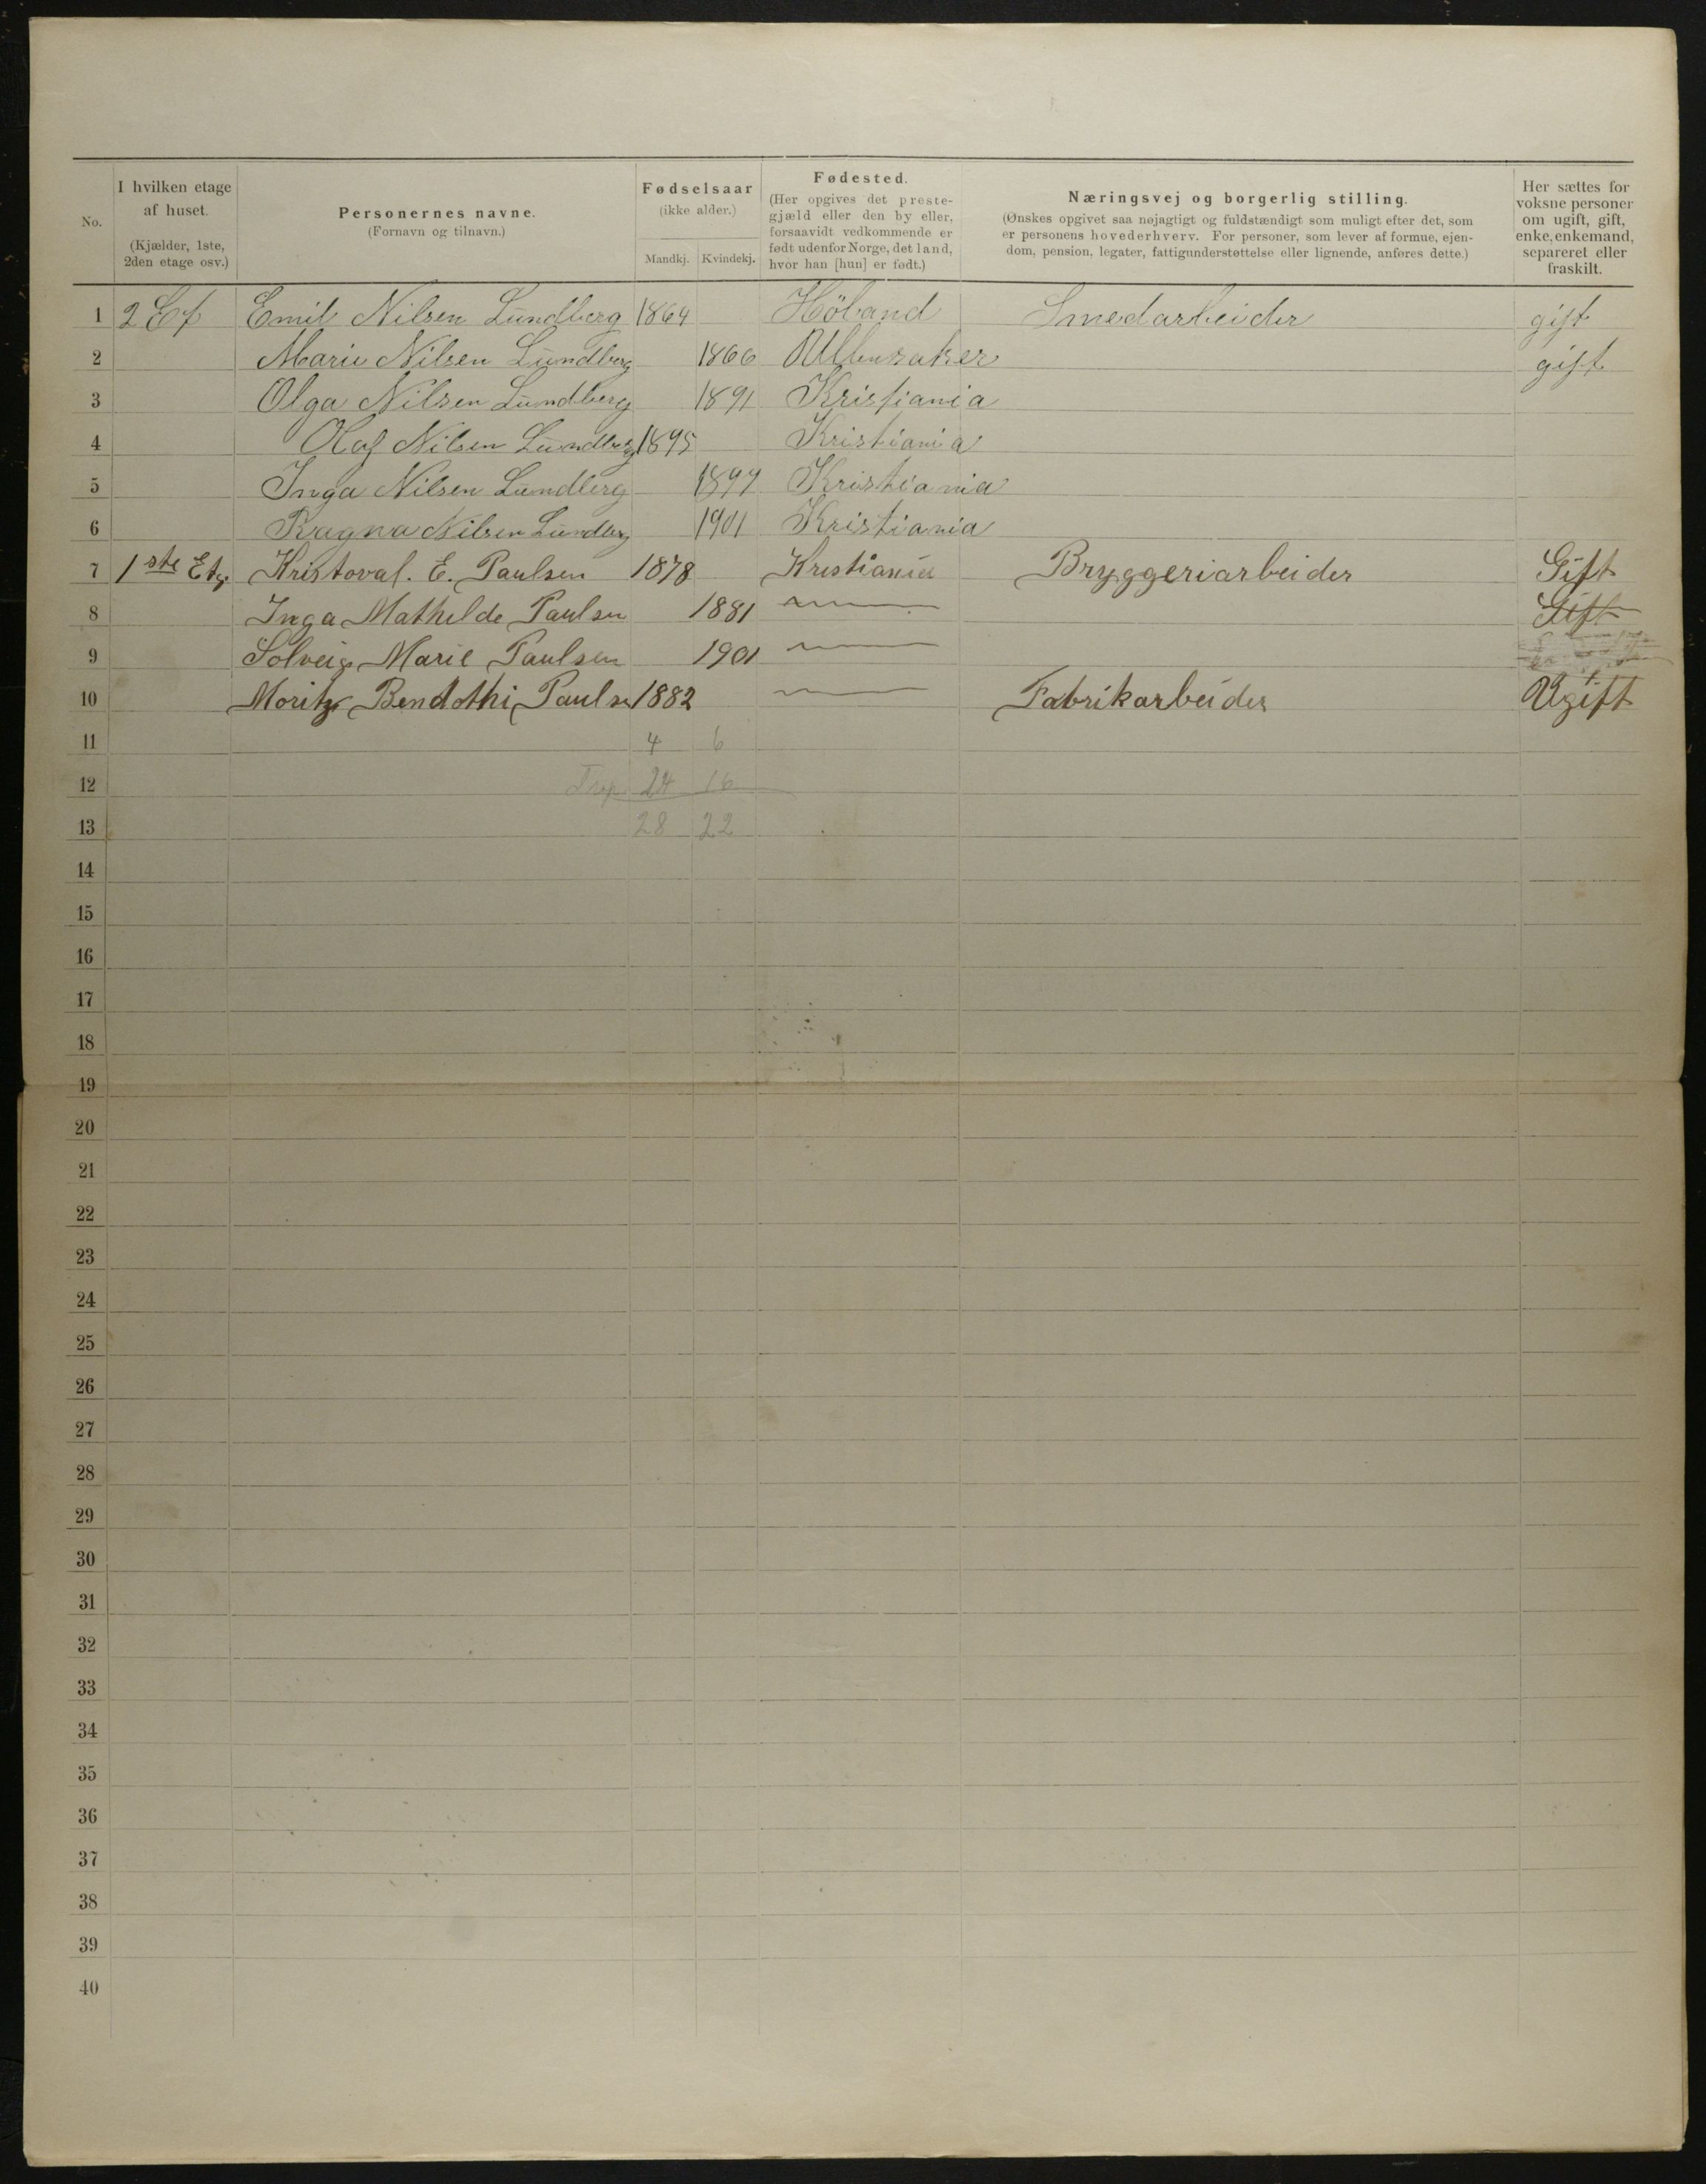 No.
I hvilken etage
af huset.
(Kjælder, 1ste,
2den etage osv.)
Personernes navne.
(Fornavn og tilnavn.)
Fødselsaar
(ikke alder.)
Mandkj. Kvindekj.
Fødested.
(Her opgives det preste-
gjæld eller den by eller,
forsaavidt vedkommende er
født udenfor Norge, det land,
hvor han [hun] er født.)
Næringsvej og borgerlig stilling.
(Ønskes opgivet saa nøjagtigt og fuldstændigt som muligt efter det, som
er personens hovederhverv. For personer, som lever af formue, ejen-
dom, pension, legater, fattigunderstøttelse eller lignende, anføres dette.)
Her sættes for
voksne personer
om ugift, gift,
enke, enkemand,
separeret eller
fraskilt.
1 2 Et Emil Nilsen Lundberg 1864 Höland Smedarbeider gift
2 Marie Nilsen Lundberg 1866 Ullensaker gift
3 Olga Nilsen Lundberg 1891 Kristiania
4 Olaf Nilsen Lundberg 1895 Kristiania
5 Inga Nilsen Lundberg 1899 Kristiania
6 Ragna Nilsen Lundberg 1901 Kristiania
7 1ste Etg. Kristoval. E. Paulsen 1878 Kristiania Bryggeriarbeider Gift
8 Inga Mathilde Paulsen 1881 Gift
9 Solveig Marie Paulsen 1901
10 Moritz Bendothi Paulsen 1882 Fabrikarbeider Ugift
11 4 6
12 24 16
13 28 22
14
15
16
17
18
19
20
21
22
23
24
25
26
27
28
29
30
31
32
33
34
35
36
37
38
39
40